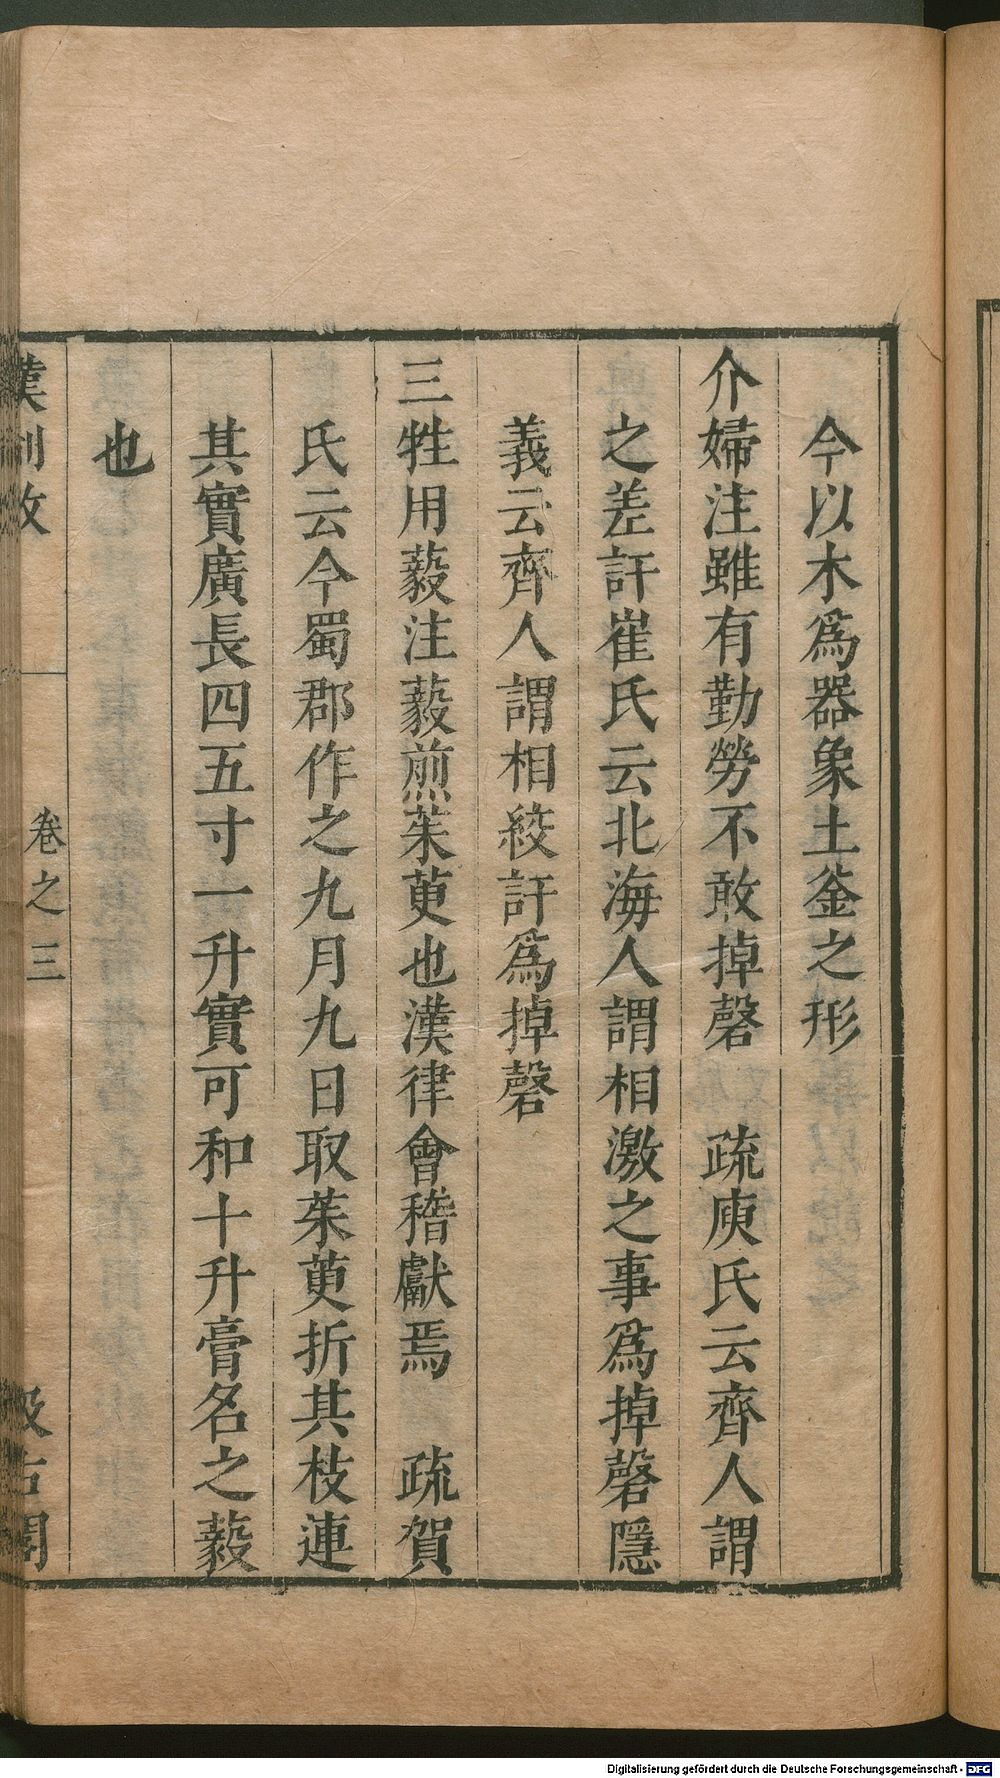 今以木爲器象土釜之形
介婦注雖有勤勞不敢掉磬　疏庾氏云齊人謂
之差訐崔氏云北海人謂相激之事爲掉磬隱
義云齊人謂相絞訐爲掉磬
三牲用藙注藙煎茱萸也漢律會稽獻焉　疏賀
氏云今蜀郡作之九月九日取茱萸折其枝連
其實廣長四五寸一升實可和十升膏名之藙
也
漢制攷　卷之三　汲古閣
Digitalisierung gefördert durch die Deutsche Forschungsgemeinschaft - DFG